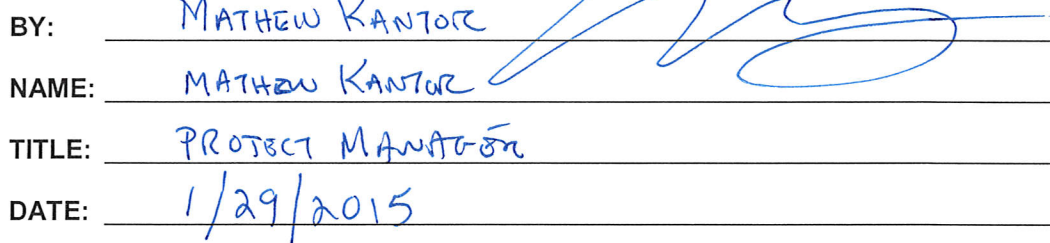 BY: MATHEW KANTOR
NAME: MATHEW KANTOR
TITLE: PROJECT MANAGER
DATE: 1/29/2015